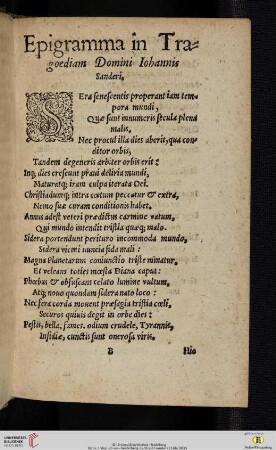 Epigramma in Tra-
goediam Domini Iohannis
Sanderi.
SEra senescentis properant iam tem-
pora mundi,
Quæ sunt innumeris secula plena
malis,
Nec procul illa dies aberit, qua con-
ditor orbis,
Tandem degeneris arbiter orbis erit:
Inq; dies crescunt praui deliria mundi,
Maturatq; iram culpa iterata Dei.
Christiadumq; intra cœtum peccatur & extra,
Nemo suæ curam conditionis habet.
Annus adest veteri prædictus carmine vatum,
Qui mundo intendit tristia quæq; malo.
Sidera portendunt perituro incommoda mundo,
Sidera vicini nuncia fida mali:
Magna Planetarum coniunctio triste minatur.
Et veleans toties mœsta Diana caput:
Phœbus & obfuscans celato lumine vultum,
Atq; nouo quondam sidera nata loco:
Nec fera corda mouent præsagia tristia cœli,
Securos quiuis degit in orbe dies:
Pestis, bella, fames, odium crudele, Tyrannis,
Insidiæ, cunctis sunt onerosa viris.
B
Hic
UNIVERSITÄTS-
BIBLIOTHEK
HEIDELBERG